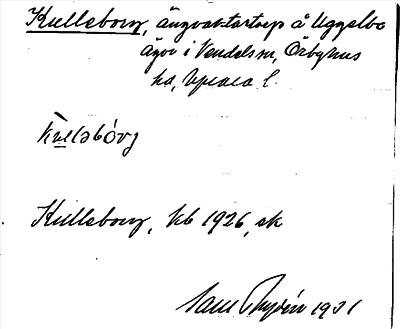 Kulleborg, ängvaktartorp å Uggelbo
ägor i Vendels sn, Örbyhus
hd, Upsala l.
Kulleborg, kb 1926, ek
Sam Rydén 1931